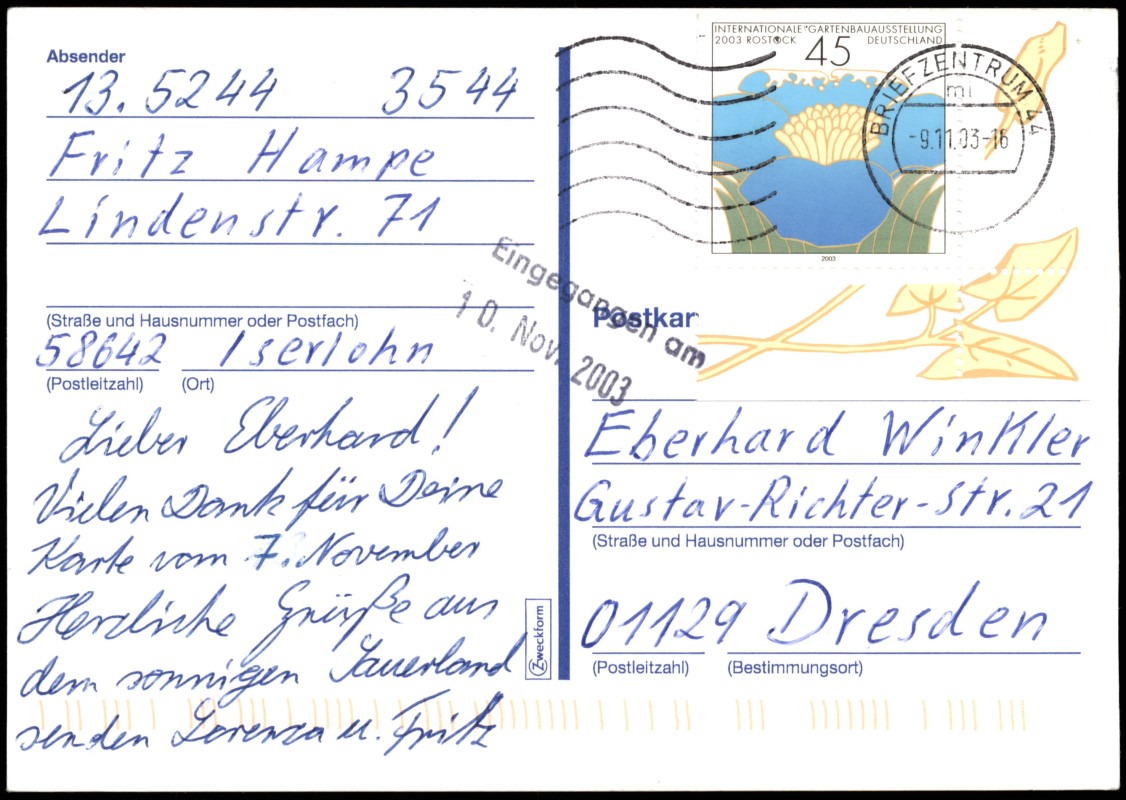 Absender
13. 5244 3544
Fritz Hampe
Lindenstr. 71
(Straße und Hausnummer oder Postfach)
58642 Iserlohn
(Postleitzahl) (Ort)
Lieber Eberhard!
Vielen Dank für Deine
Karte vom 7. November
Herzliche Grüße aus
dem sonnigen Sauerland
senden Lorenza u. Fritz
Zweckform
Eingegangen am
10. Nov. 2003
INTERNATIONALE GARTENBAUAUSSTELLUNG
2003 ROSTOCK 45 DEUTSCHLAND
2003
BRIEFZENTRUM 44
mi
-9.11.03-16
Postkar
Eberhard Winkler
Gustav-Richter-Str. 21
(Straße und Hausnummer oder Postfach)
01129 Dresden
(Postleitzahl) (Bestimmungsort)